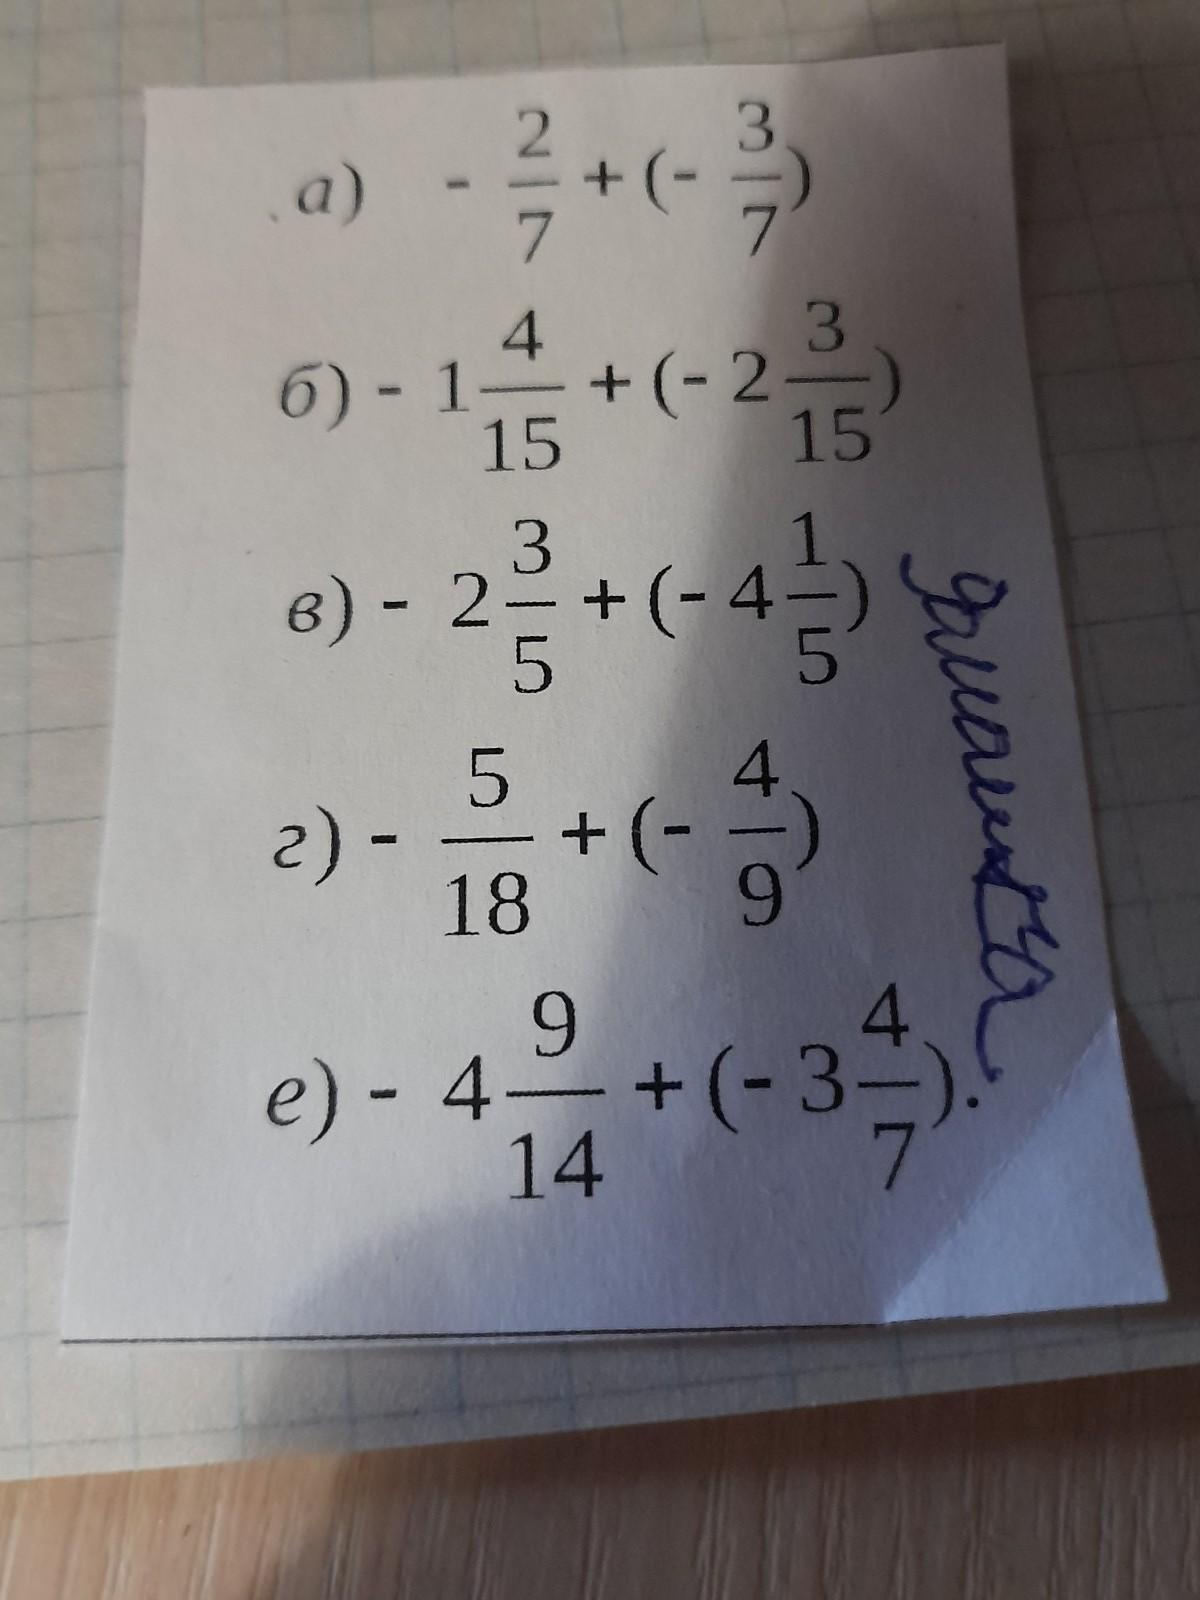 а) - 2/7 + (- 3/7)
б) - 1 4/15 + (- 2 3/15)
в) - 2 3/5 + (- 4 1/5)
г) - 5/18 + (- 4/9)
е) - 4 9/14 + (- 3 4/7).